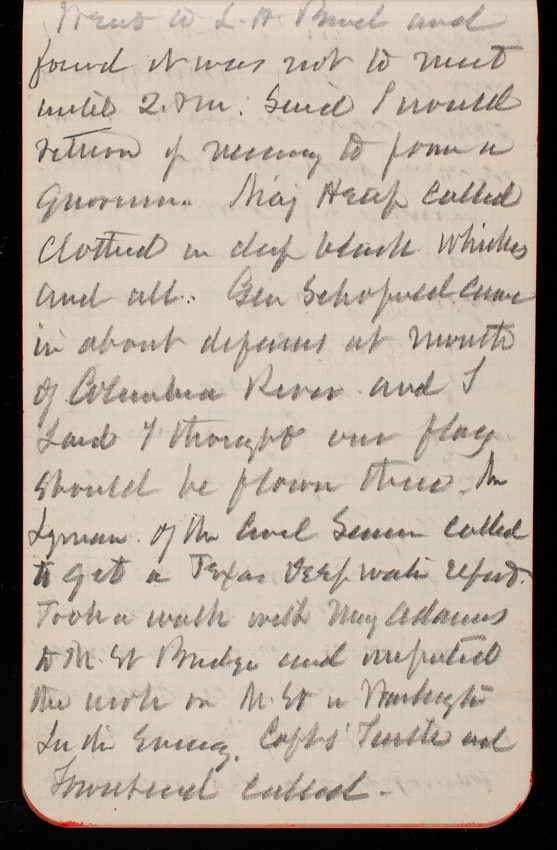 Went to L. H. Board and
found it was not to meet
until 2. P.m. Said I would
return if necessary to form a
Quorum. Maj Heap called
clothed in deep black whiskers
and all. Gen Schofield came
in about defenses at mouth
of Columbia River and I
said I thought our flag
should be flown there. Mr
Lyman of the Civil Service called
to get a Texas Deep water report.
Took a walk with Maj Adams
to M. St Bridge and inspected
the work on M. St in Washington
In the Evening. Capts Turtle and
Townsend called.